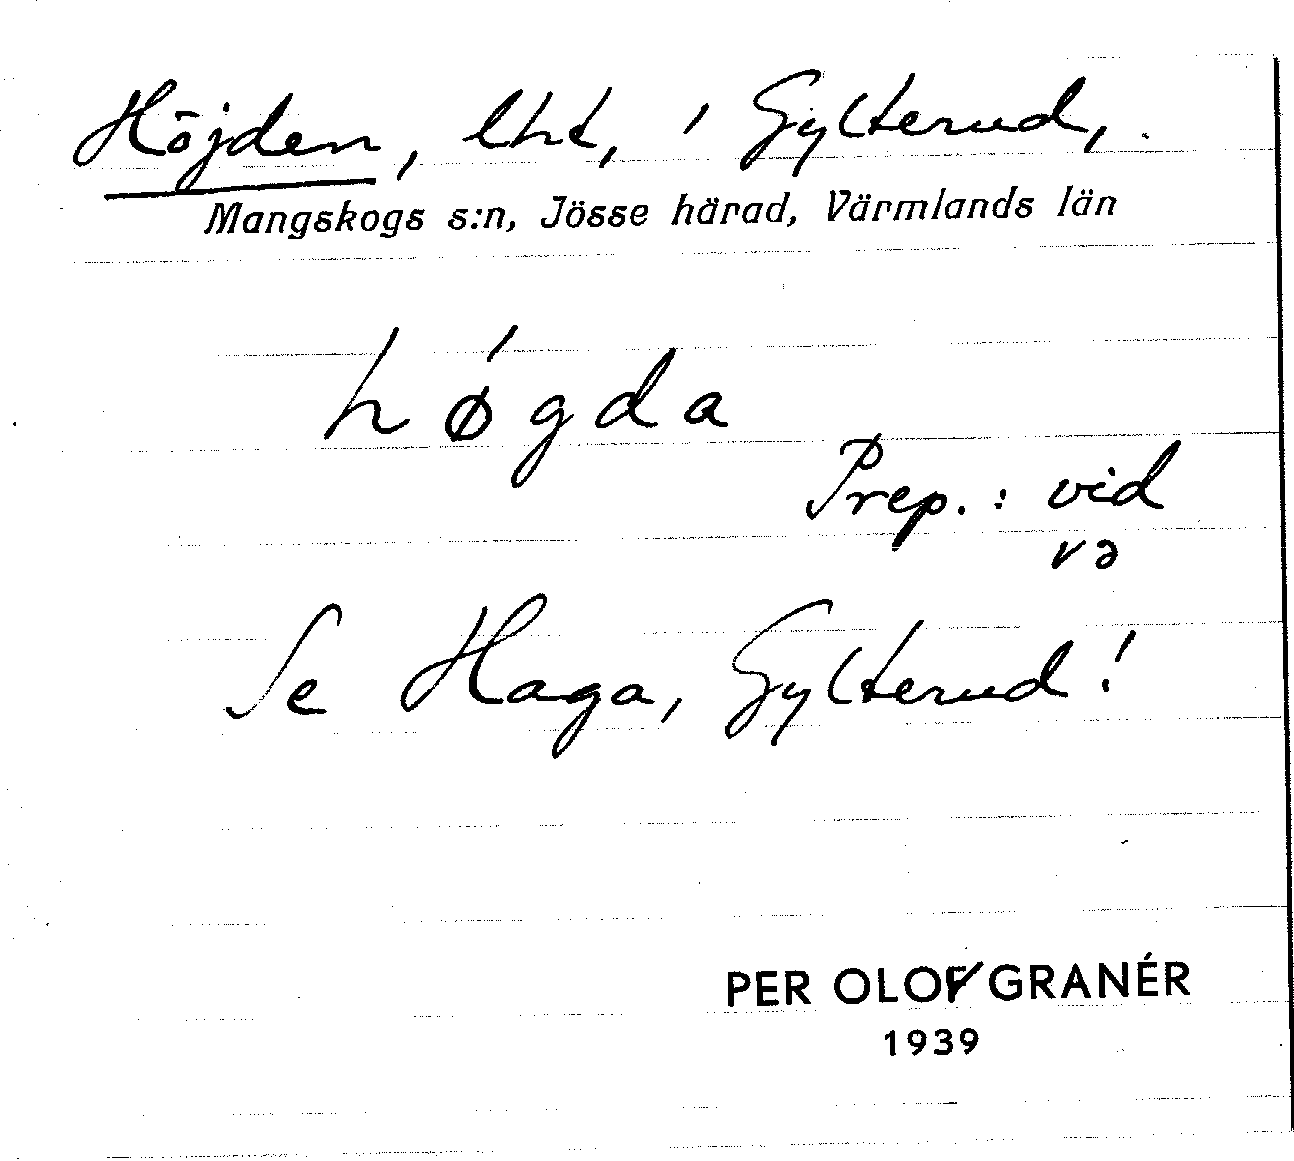 Höjden, lht, i Gylterud,
Mangskogs s:n, Jösse härad, Värmlands län
hǿgda
Prep.: vid
və
Se Haga, Gylterud!
PER OLOF GRANÉR
1939